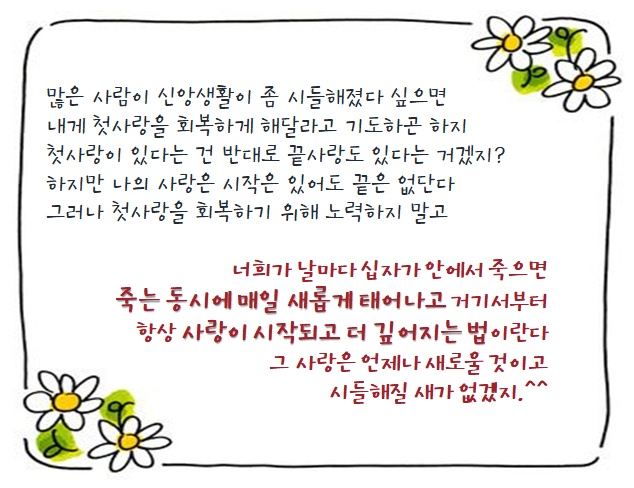 많은 사람이 신앙생활이 좀 시들해졌다 싶으면
내게 첫사랑을 회복하게 해달라고 기도하곤 하지
첫사랑이 있다는 건 반대로 끝사랑도 있다는 거겠지?
하지만 나의 사랑은 시작은 있어도 끝은 없단다
그러나 첫사랑을 회복하기 위해 노력하지 말고
너희가 날마다 십자가 안에서 죽으면
죽는 동시에 매일 새롭게 태어나고 거기서부터
항상 사랑이 시작되고 더 깊어지는 법이란다
그 사랑은 언제나 새로울 것이고
시들해질 새가 없겠지.^^